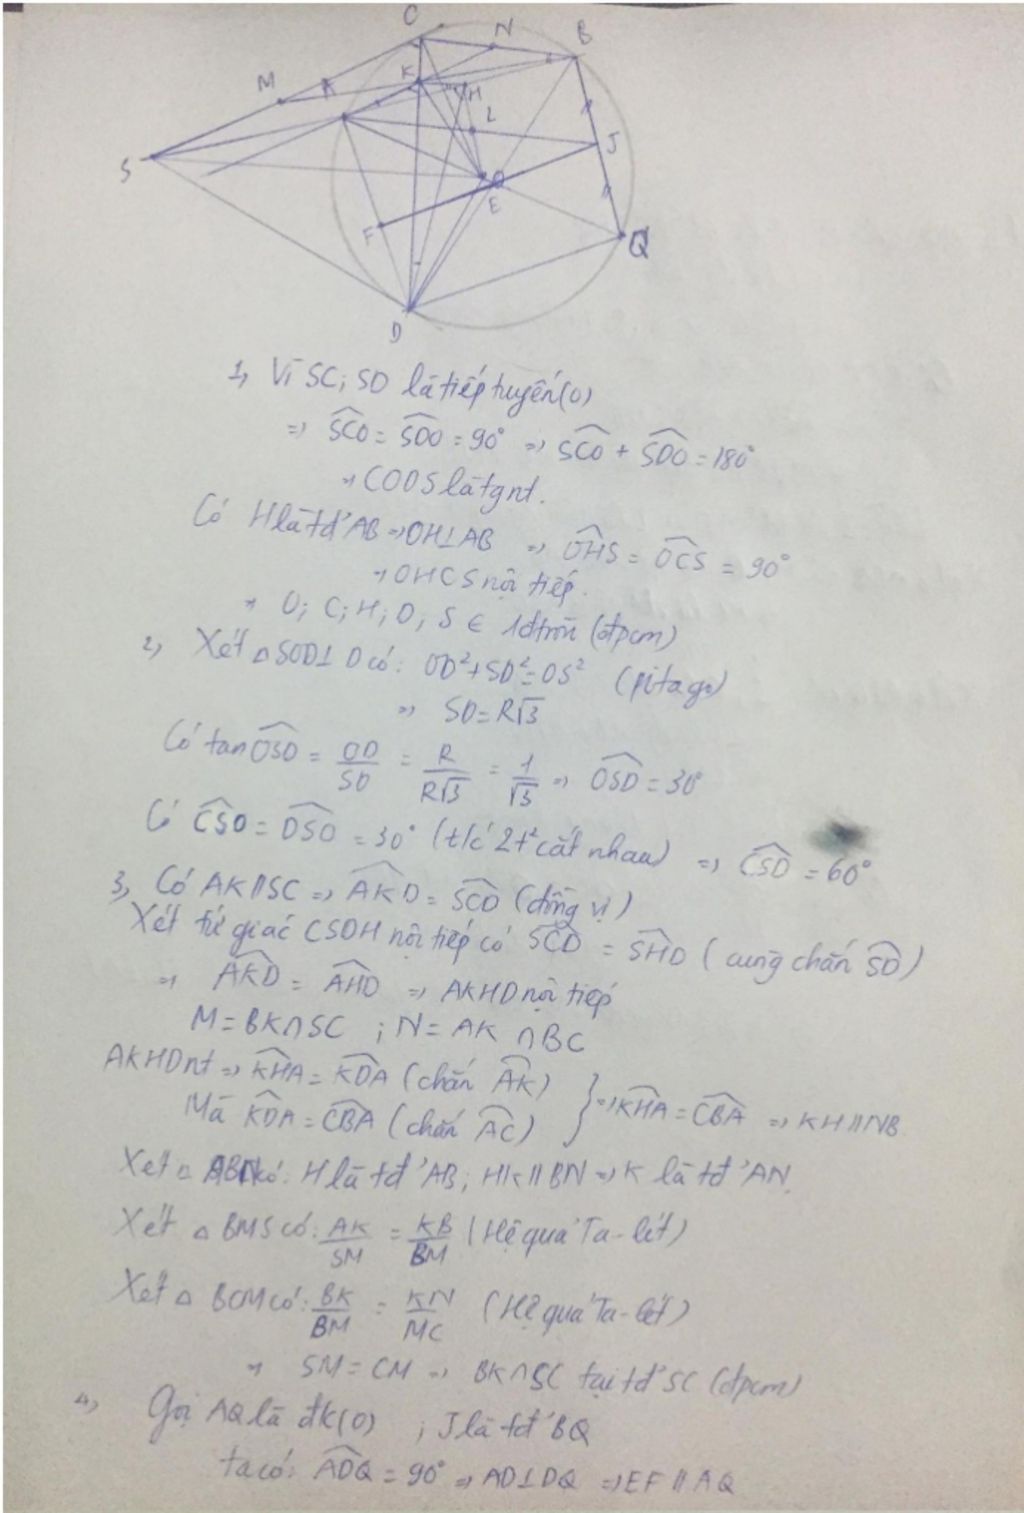 C N B
M A K H
L
S J
O
F E
Q
D
1, Vì SC; SD là tiếp tuyến (O)
=> SCO = SDO = 90° => SCO + SDO = 180°
=> CODS là tgnt.
Có H là tđ' AB => OH⊥AB => OHS = OCS = 90°
=> OHCS nội tiếp.
=> O; C; H; D; S ∈ 1 đtròn (đpcm)
2, Xét △SOD⊥D có: OD²+SD²=OS² (pitago)
=> SD = R√3
Có tan OSD = OD/SD = R/R√3 = 1/√3 => OSD = 30°
Có CSO = DSO = 30° (t/c 2t² cắt nhau) => CSD = 60°
3, Có AK//SC => AKD = SCD (đồng vị)
Xét tứ giác CSDH nội tiếp có SCD = SHD (cung chắn SD)
=> AKD = AHD => AKHD nội tiếp
M = BK∩SC ; N = AK∩BC
AKHD nt => KHA = KDA (chắn AK)
Mà KDA = CBA (chắn AC) } => KHA = CBA => KH//NB
Xét △ ABN có: H là tđ' AB; HK//BN => K là tđ' AN.
Xét △ BMS có: AK/SM = KB/BM (Hệ quả Ta-lét)
Xét △ BCM có: BK/BM = KN/MC (Hệ quả Ta-lét)
=> SM = CM => BK∩SC tại tđ' SC (đpcm)
4, Gọi AQ là đk(O) ; J là tđ' BQ
ta có: ADQ = 90° => AD⊥DQ => EF//AQ